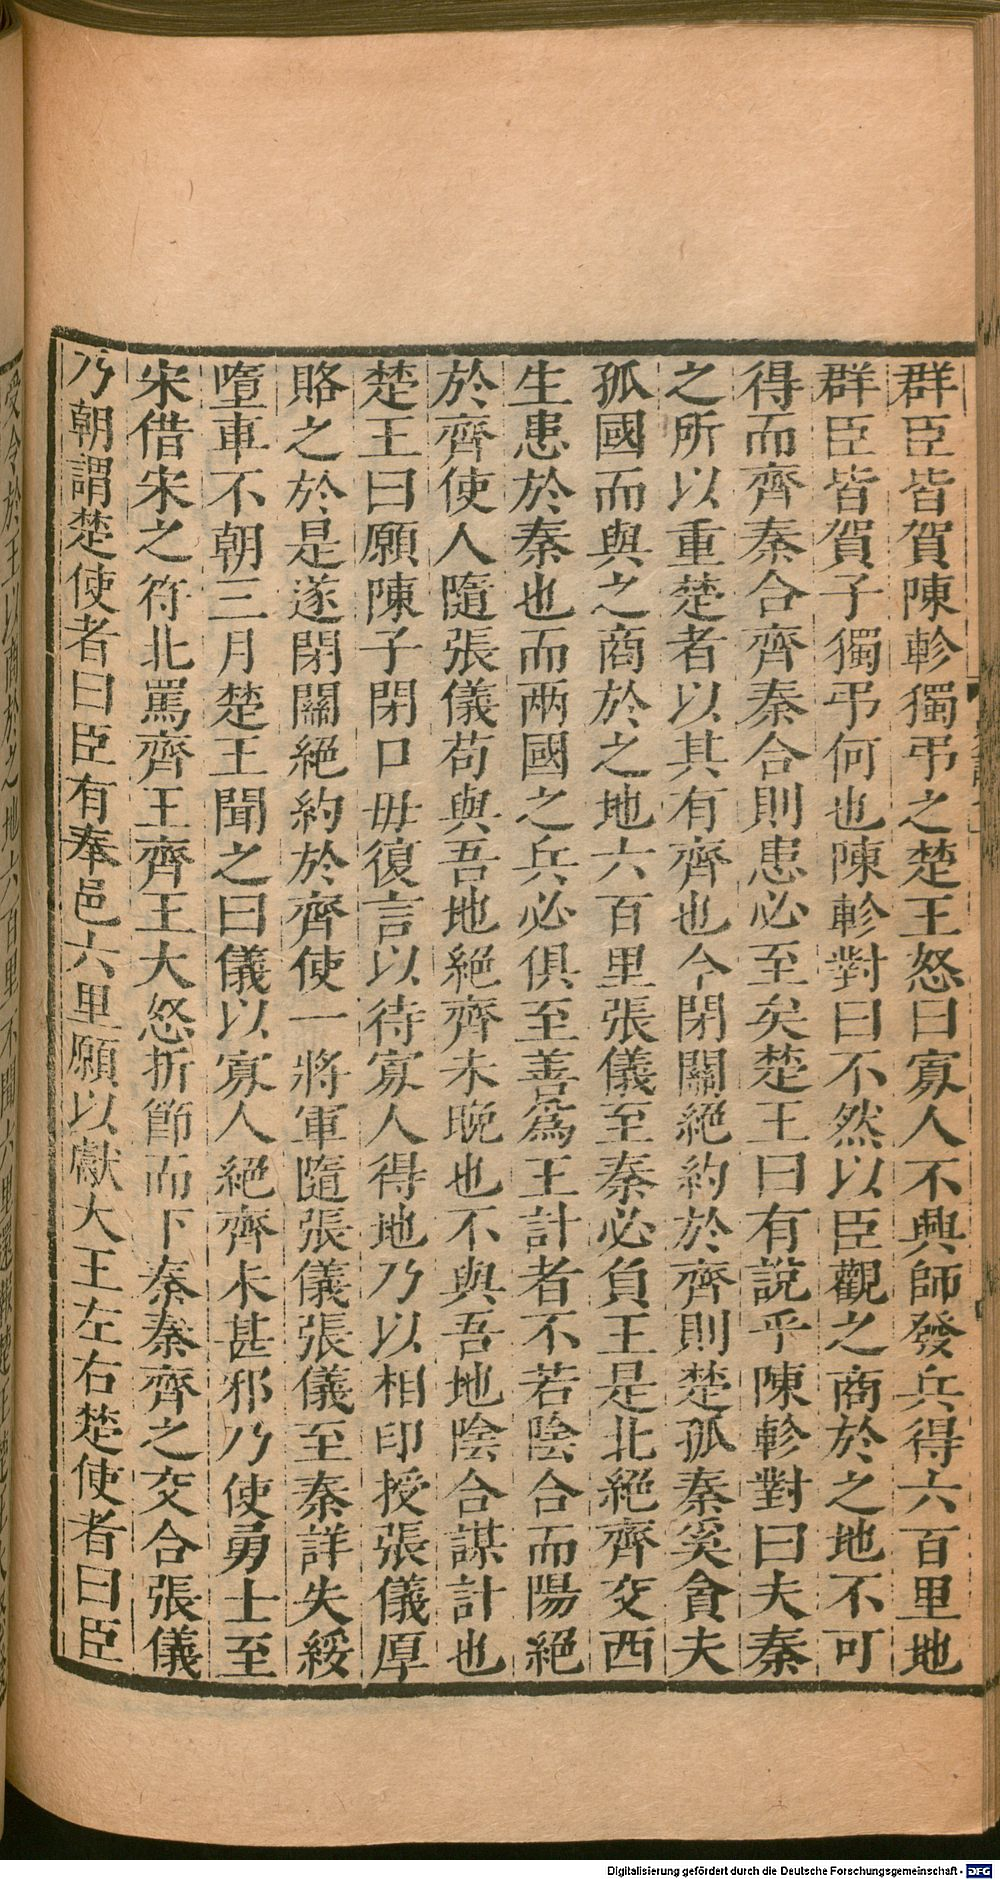 群臣皆賀陳軫獨弔之楚王怒曰寡人不興師發兵得六百里地
群臣皆賀子獨弔何也陳軫對曰不然以臣觀之商於之地不可
得而齊秦合齊秦合則患必至矣楚王曰有說乎陳軫對曰夫秦
之所以重楚者以其有齊也今閉關絕約於齊則楚孤秦奚貪夫
孤國而與之商於之地六百里張儀至秦必負王是北絕齊交西
生患於秦也而兩國之兵必俱至善為王計者不若陰合而陽絕
於齊使人隨張儀苟與吾地絕齊未晚也不與吾地陰合謀計也
楚王曰願陳子閉口毋復言以待寡人得地乃以相印授張儀厚
賂之於是遂閉關絕約於齊使一將軍隨張儀張儀至秦詳失綏
墮車不朝三月楚王聞之曰儀以寡人絕齊未甚邪乃使勇士至
宋借宋之符北罵齊王齊王大怒折節而下秦秦齊之交合張儀
乃朝謂楚使者曰臣有奉邑六里願以獻大王左右楚使者曰臣
受令於王以商於之地六百里不聞六里還報楚王楚王大怒
Digitalisierung gefördert durch die Deutsche Forschungsgemeinschaft - DFG